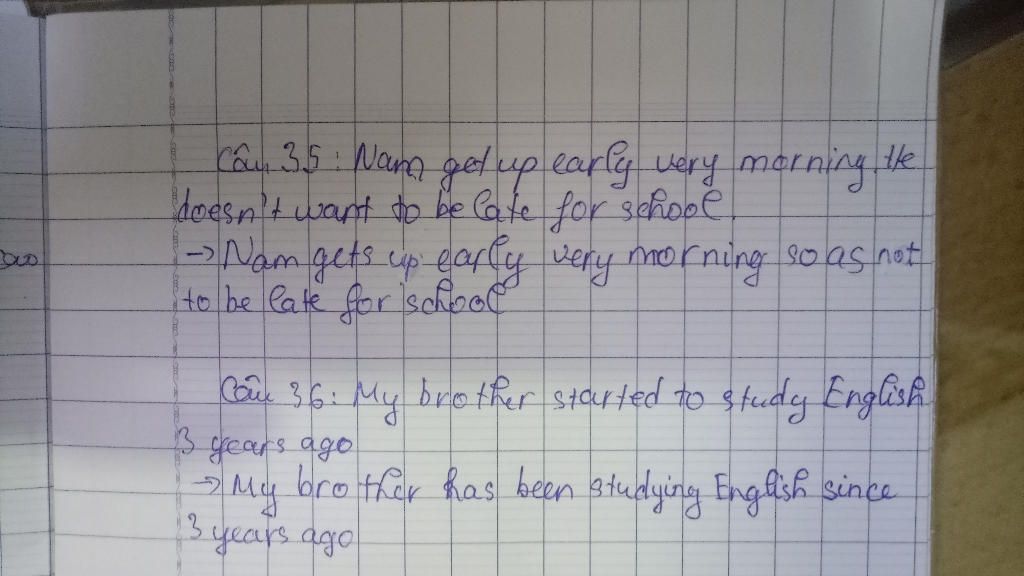 Câu 3.5: Nam get up early very morning. He
doesn't want to be late for school.
→ Nam gets up early very morning so as not
to be late for school
Câu 36: My brother started to study English
3 years ago
→ My brother has been studying English since
3 years ago